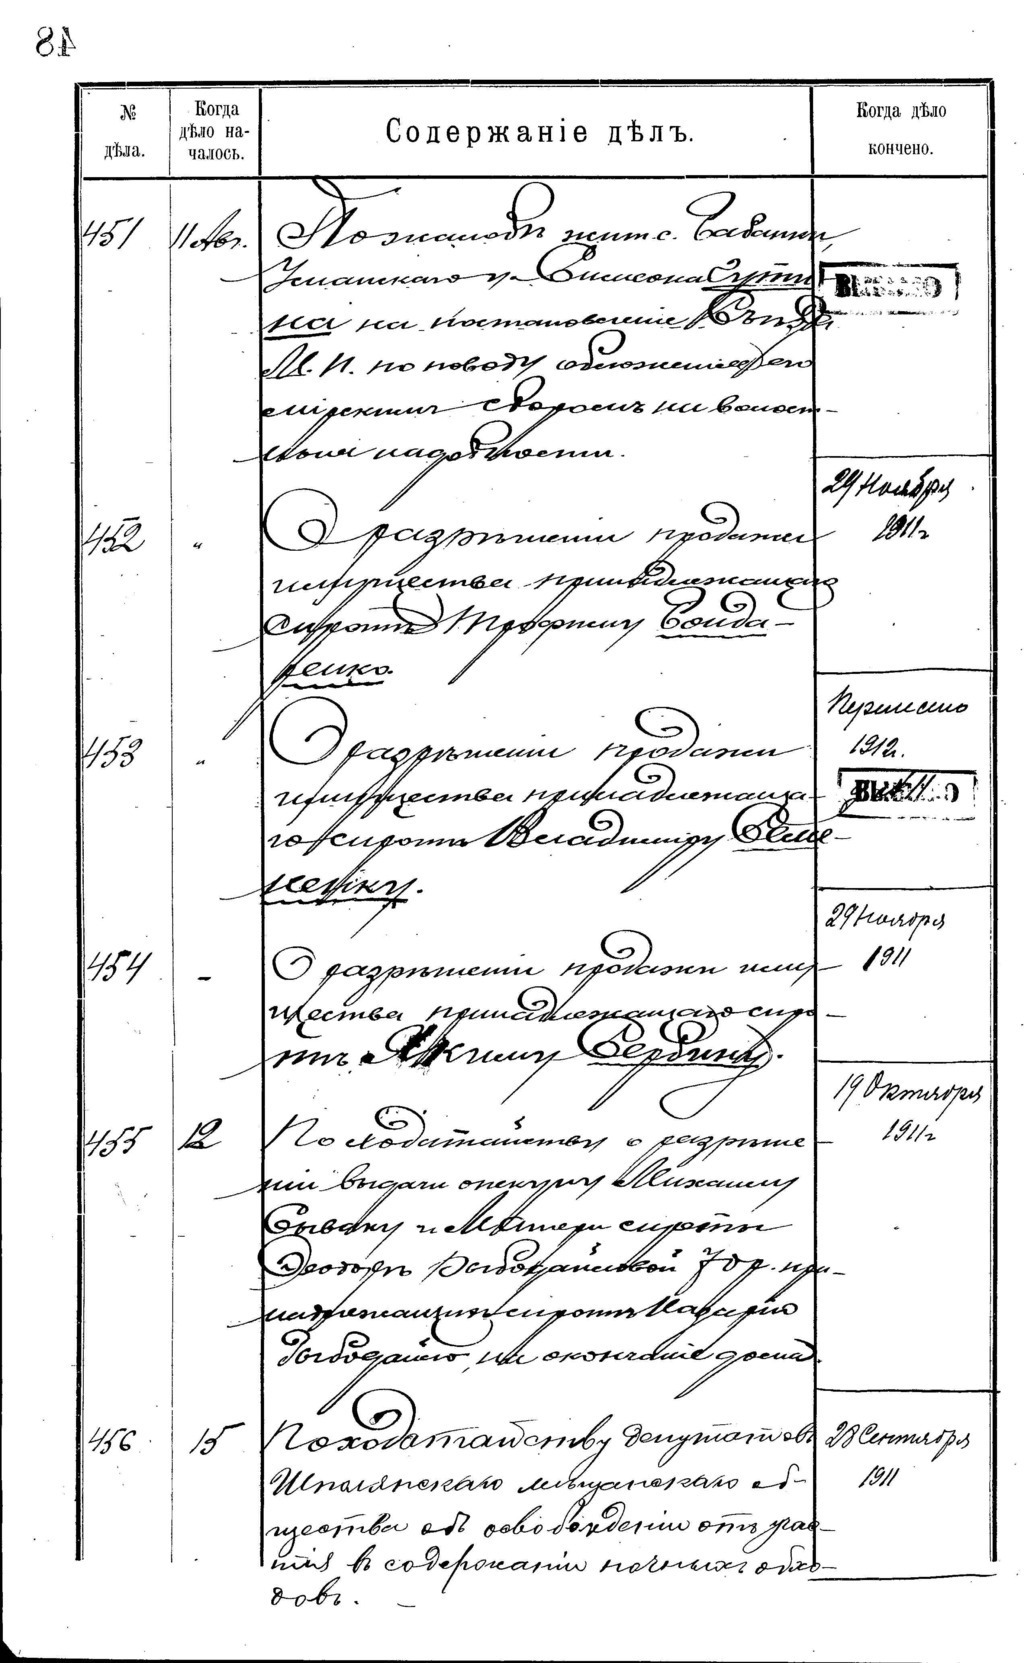 48
№ дѣла.
Когда дѣло началось.
Содержаніе дѣлъ.
Когда дѣло кончено.
451
11 Авг.
По жалобѣ жит. с. Бабанки,
Уманскаго у. Симеона Сути
на на постановленіе Съѣзда
М. П. по поводу обложенія его
мірскимъ сборомъ на волост-
ныя надобности.
452
"
О разрѣшеніи продажи
имущества принадлежащаго
сиротѣ Трофиму Бонда-
ренко.
29 Ноября
1911г
453
"
О разрѣшеніи продажи
имущества принадлежаща-
го сиротѣ Владиміру
Перенесено
1912г.
454
-
О разрѣшеніи продажи иму-
щества принадлежащаго сиро-
тѣ Якиму Сербину.
29 Ноября
1911
455
12
По ходатайству о разрѣше-
ніи выдачи опекуну Михаилу
и Матери сироты
Ѳеодорѣ 70 р. при-
надлежащихъ сиротѣ Назарію
на окончаніе дома.
19 Октября
1911г
456
15
По ходатайству депутатовъ
Шполянскаго мѣщанскаго об-
щества объ освобожденіи отъ учас-
тія въ содержаніи ночныхъ обхо-
довъ.
28 Сентября
1911